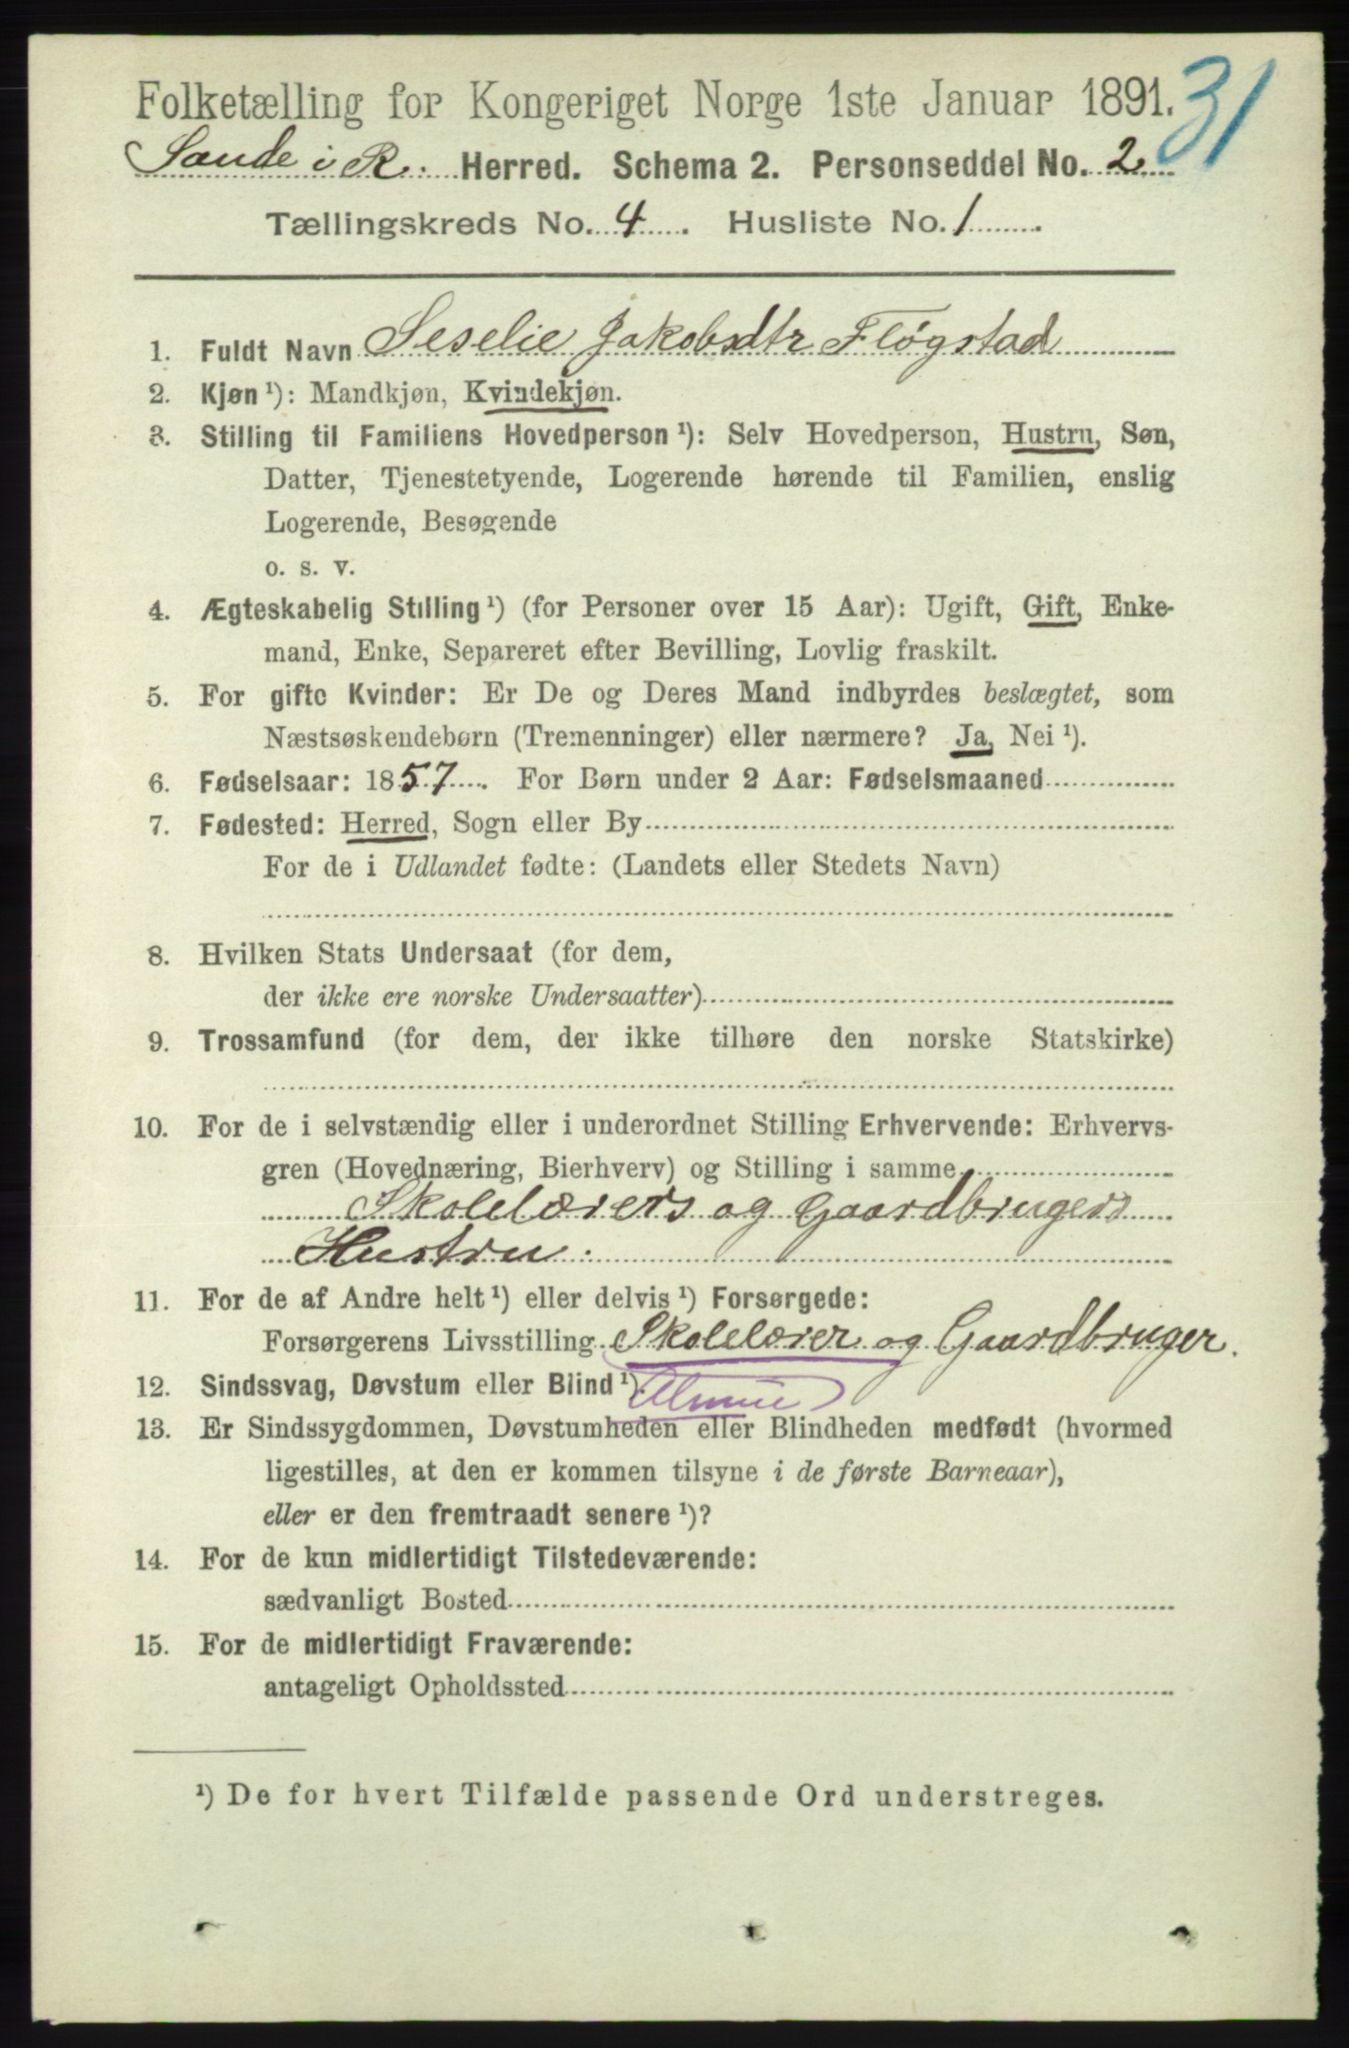 Folketælling for Kongeriget Norge 1ste Januar 1891.
31
Sande i R. Herred. Schema 2. Personseddel No. 2
Tællingskreds No. 4. Husliste No. 1.
1. Fuldt Navn Seselie Jakobsdtr Fløgstad
2. Kjøn ¹): Mandkjøn, Kvindekjøn.
3. Stilling til Familiens Hovedperson ¹): Selv Hovedperson, Hustru, Søn,
Datter, Tjenestetyende, Logerende hørende til Familien, enslig
Logerende, Besøgende
o. s. v.
4. Ægteskabelig Stilling ¹) (for Personer over 15 Aar): Ugift, Gift, Enke-
mand, Enke, Separeret efter Bevilling, Lovlig fraskilt.
5. For gifte Kvinder: Er De og Deres Mand indbyrdes beslægtet, som
Næstsøskendebørn (Tremenninger) eller nærmere? Ja, Nei ¹).
6. Fødselsaar: 1857. For Børn under 2 Aar: Fødselsmaaned
7. Fødested: Herred, Sogn eller By
For de i Udlandet fødte: (Landets eller Stedets Navn)
8. Hvilken Stats Undersaat (for dem,
der ikke ere norske Undersaatter)
9. Trossamfund (for dem, der ikke tilhøre den norske Statskirke)
10. For de i selvstændig eller i underordnet Stilling Erhvervende: Erhvervs-
gren (Hovednæring, Bierhverv) og Stilling i samme
Skolelærers og Gaardbrugers
Hustru.
11. For de af Andre helt ¹) eller delvis ¹) Forsørgede:
Forsørgerens Livsstilling Skolelærer og Gaardbruger.
12. Sindssvag, Døvstum eller Blind ¹).
13. Er Sindssygdommen, Døvstumheden eller Blindheden medfødt (hvormed
ligestilles, at den er kommen tilsyne i de første Barneaar),
eller er den fremtraadt senere ¹)?
14. For de kun midlertidigt Tilstedeværende:
sædvanligt Bosted
15. For de midlertidigt Fraværende:
antageligt Opholdssted
¹) De for hvert Tilfælde passende Ord understreges.